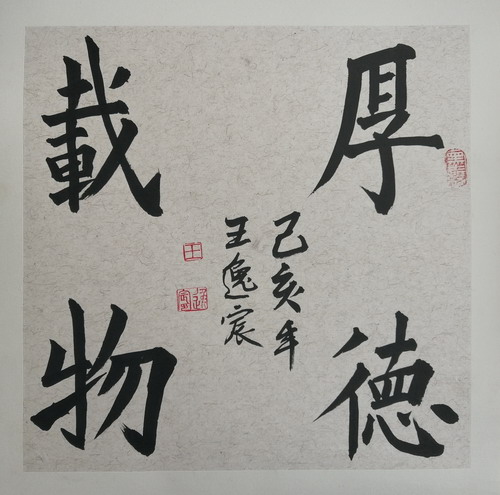 厚德
載物
己亥年
王逸宸
王